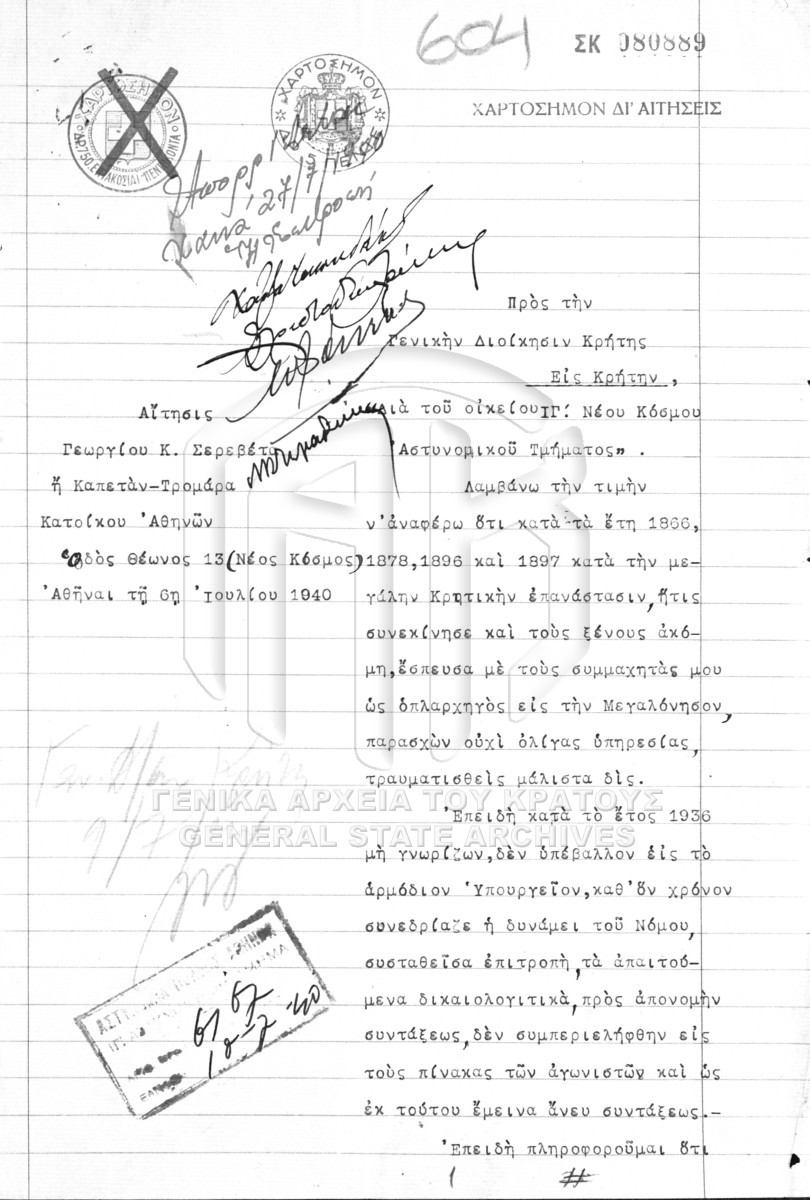 604
ΣΚ 080889
ΧΑΡΤΟΣΗΜΟΝ
ΧΑΡΤΟΣΗΜΟΝ
ΧΑΡΤΟΣΗΜΟΝ ΔΙ' ΑΙΤΗΣΕΙΣ
Πρὸς τὴν
Γενικὴν Διοίκησιν Κρήτης
Εἰς Κρήτην,
Αἴτησις
Γεωργίου Κ. Σερεβέτα
ἢ Καπετὰν-Τρομάρα
Κατοίκου Ἀθηνῶν
ὁδὸς Θέωνος 13 (Νέος Κόσμος)
Ἀθῆναι τῇ 6ῃ Ἰουλίου 1940
διὰ τοῦ οἰκείου ΙΓ΄. Νέου Κόσμου
Ἀστυνομικοῦ Τμήματος".
Λαμβάνω τὴν τιμὴν
ν'ἀναφέρω ὅτι κατὰ τὰ ἔτη 1866,
1878,1896 καὶ 1897 κατὰ τὴν με-
γάλην Κρητικὴν ἐπανάστασιν, ἥτις
συνεκίνησε καὶ τοὺς ξένους ἀκό-
μη, ἔσπευσα μὲ τοὺς συμμαχητὰς μου
ὡς ὁπλαρχηγὸς εἰς τὴν Μεγαλόνησον,
παρασχὼν οὐχὶ ὀλίγας ὑπηρεσίας,
τραυματισθεὶς μάλιστα δὶς.
Ἐπειδὴ κατὰ τὸ ἔτος 1936
μὴ γνωρίζων, δὲν ὑπέβαλλον εἰς τὸ
ἁρμόδιον Ὑπουργεῖον, καθ'ὃν χρόνον
συνεδρίαζε ἡ δυνάμει τοῦ Νόμου,
συσταθεῖσα ἐπιτροπὴ, τὰ ἀπαιτού-
μενα δικαιολογιτικὰ, πρὸς ἀπονομὴν
συντάξεως, δὲν συμπεριελήφθην εἰς
τοὺς πίνακας τῶν ἀγωνιστῶν καὶ ὡς
ἐκ τούτου ἔμεινα ἄνευ συντάξεως.-
Ἐπειδὴ πληροφοροῦμαι ὅτι
ΓΕΝΙΚΑ ΑΡΧΕΙΑ ΤΟΥ ΚΡΑΤΟΥΣ
GENERAL STATE ARCHIVES
1